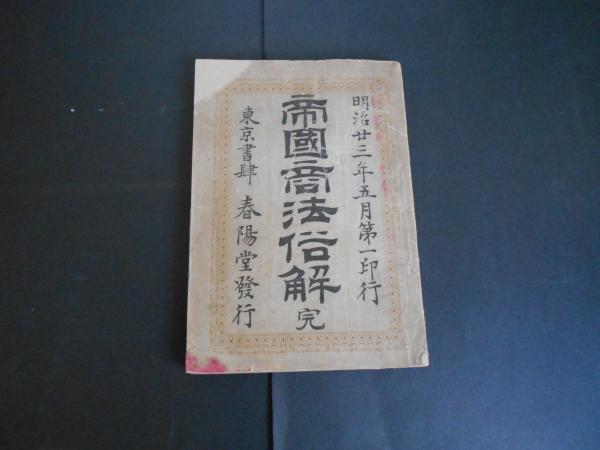 明治廿三年五月第一印行
帝國商法俗解 完
東京書肆 春陽堂發行